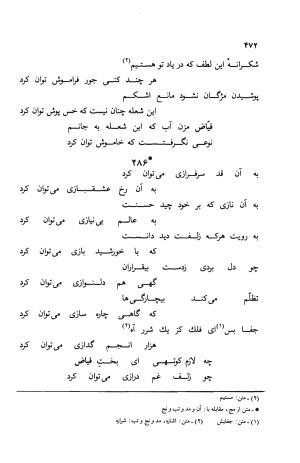 ۴۷۲
شکرانهٔ این لطف که در یاد تو هستیم(۲)
هر چند کنی جور فراموش توان کرد
پوشیدن مژگان نشود مانع اشکم
این شعله چنان نیست که خس پوش توان کرد
فیّاض مزن آب که این شعله به جانم
نوعی نگرفتست که خاموش توان کرد
*۲۸۶
به آن قد سرفرازی می‌توان کرد
به آن رخ عشقبازی می‌توان کرد
به آن نازی که بر خود چید حسنت
به عالم بی‌نیازی می‌توان کرد
به رویت هرکه زلفت دید دانست
که با خورشید بازی می‌توان کرد
چو دل بردی زدست بیقراران
گهی هم دلنوازی می‌توان کرد
تظلّم می‌کند بیچارگی‌ها
که گاهی چاره سازی می‌توان کرد
جفا بس(۱) ای فلک کز یك شرر آه(۲)
هزار انجم گدازی می‌توان کرد
چه لازم کوتهی ای بختِ فیاض
چو زلف غم درازی می‌توان کرد
(۲) ـ متن: مستیم
* ـ متن از مج، مقابله با: آن و مد و تب و نج
(۱) ـ متن: جفایش (۲) ـ متن: اشاره، مد و نج و تب: شراره